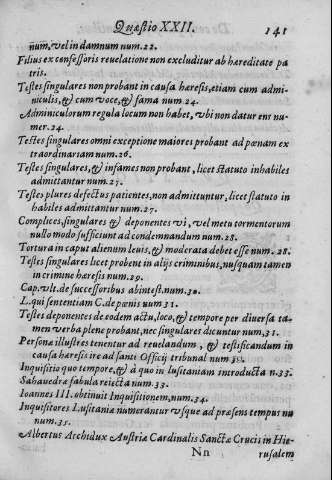 Quæstio XXII. 141
num, vel in damnum num. 22.
Filius ex confessoris reuelatione non excluditur ab hæreditate pa
tris.
Testes singulares non probant in causa hæresis, etiam cum admi-
niculis, & cum voce, & fama num 24.
Adminiculorum regula locum non habet, vbi non datur ens nu-
mer. 24.
Testes singulares omni exceptione maiores probant ad pœnam ex
traordinariam num. 26.
Testes singulares, & infames non probant, licet statuto inhabiles
admittantur num. 27.
Testes plures defectus patientes, non admittuntur, licet statuto in
habiles admittantur num. 27.
Complices, singulares & deponentes vi, vel metu tormentorum
nullo modo sufficiunt ad condemnandum num. 28.
Tortura in caput alienum leuis, & moderata debet esse num. 28.
Testes singulares licet probent in alijs criminibus, nusquam tamen
in crimine hæresis num. 29.
Cap. vlt. de successoribus abintest. num. 30.
L. qui sententiam C. de pœnis num 31.
Testes deponentes de eodem actu, loco, & tempore per diuersa ta
men verba plene probant, nec singulares dicuntur num, 31.
Personæ illustres tenentur ad reuelandum, & testificandum in
causa hæresis ire ad sancti Officij tribunal num
Inquisitio quo tempore, & à quo in Lusitaniam introducta n. 33.
Sahauedræ fabula reiecta num 33.
Ioannes III. obtinuit Inquisitionem, num. 34.
Inquisitores Lusitaniæ numerantur vsque ad præsens tempus nu
num. 35.
Albertus Archidux Austriæ Cardinalis Sanctæ Crucis in Hie-
Nn rusalem